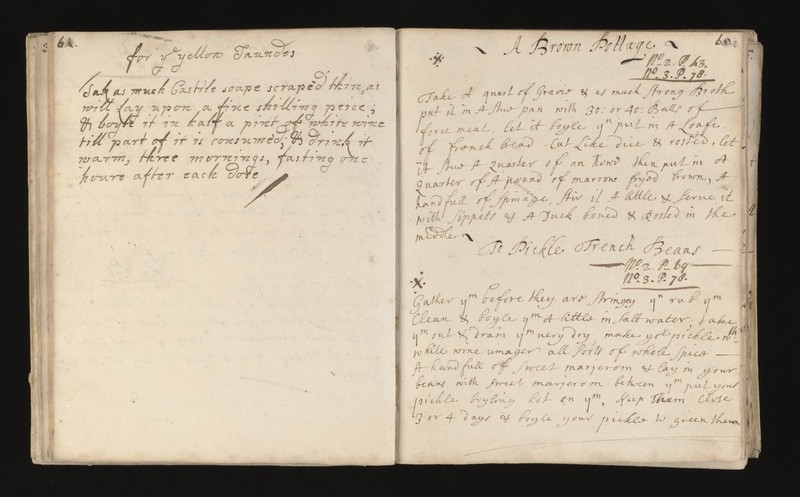 for yᵉ yellow Jaundes
Tak as much Castile soape scraped thin, as
will lay upon a fine shilling peice;
& boyle it in half a pint of white wine
till part of it is consumed; & drink it
warm, three mornings, fasting one
houre after each dose
A Brown Pottage
No. 2. P. 63.
No. 3. P. 78.
Take A quart of Gravie & as much Strong Broth
put it in A Stue pan with 30: or 40: Balls of
force meat, let it boyle yⁿ put in A Loafe
of french bead Cut Like dice & rosted, let
it Stue A Quarter of an howr then put in A
Quarter of A pound of marrow fryed brown, A
handfull of Spinage, Stir it A little & Serve it
with Sippets & A Duck boned & Rosted in the
middle
To Pickle French Beans
No. 2. P. 69
No. 3. P. 78.
Gather yᵐ before they are Stringey yⁿ rub yᵐ
Clean & boyle yᵐ A little in Salt water; take
yᵐ out & drain yᵐ very dry make yoʳ pickle wᵗʰ
white wine vinager all sorts of whole spice
A handfull of Sweet marjerom & lay in your
beans with sweet marjerom between yᵐ put your
pickle boyling hot on yᵐ. Keep Them Close
3 or 4 days & boyle your pickle to green them